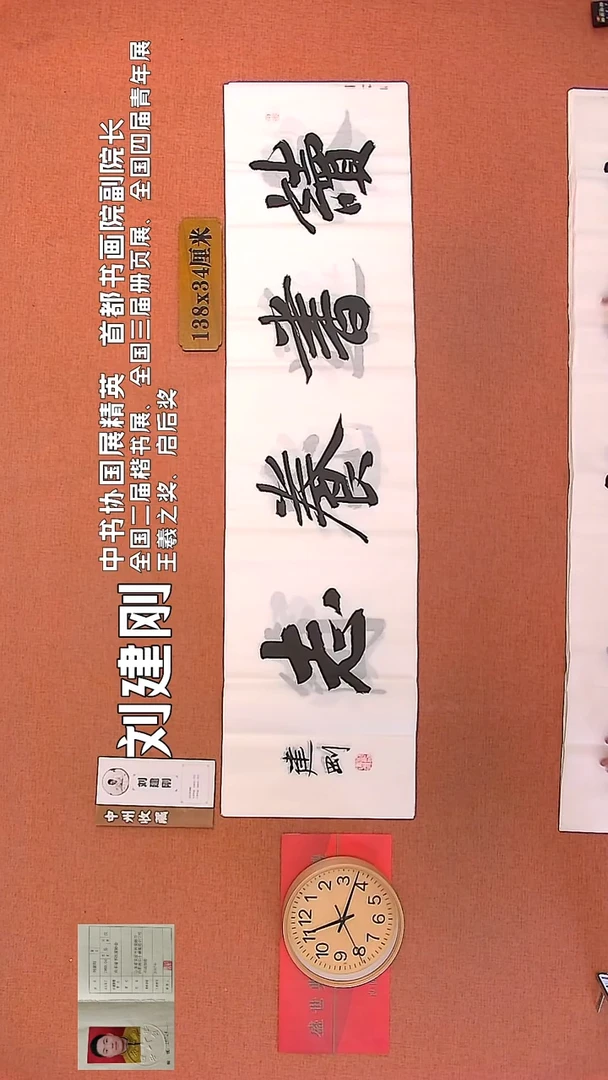 刘建刚
中书协国展精英 首都书画院副院长
全国二届楷书展、全国三届册页展、全国四届青年展
王羲之奖、启后奖
138x34厘米
讀書養志
建剛
刘建刚
中州收藏
盛世
12
1
2
3
4
5
6
7
8
9
10
11